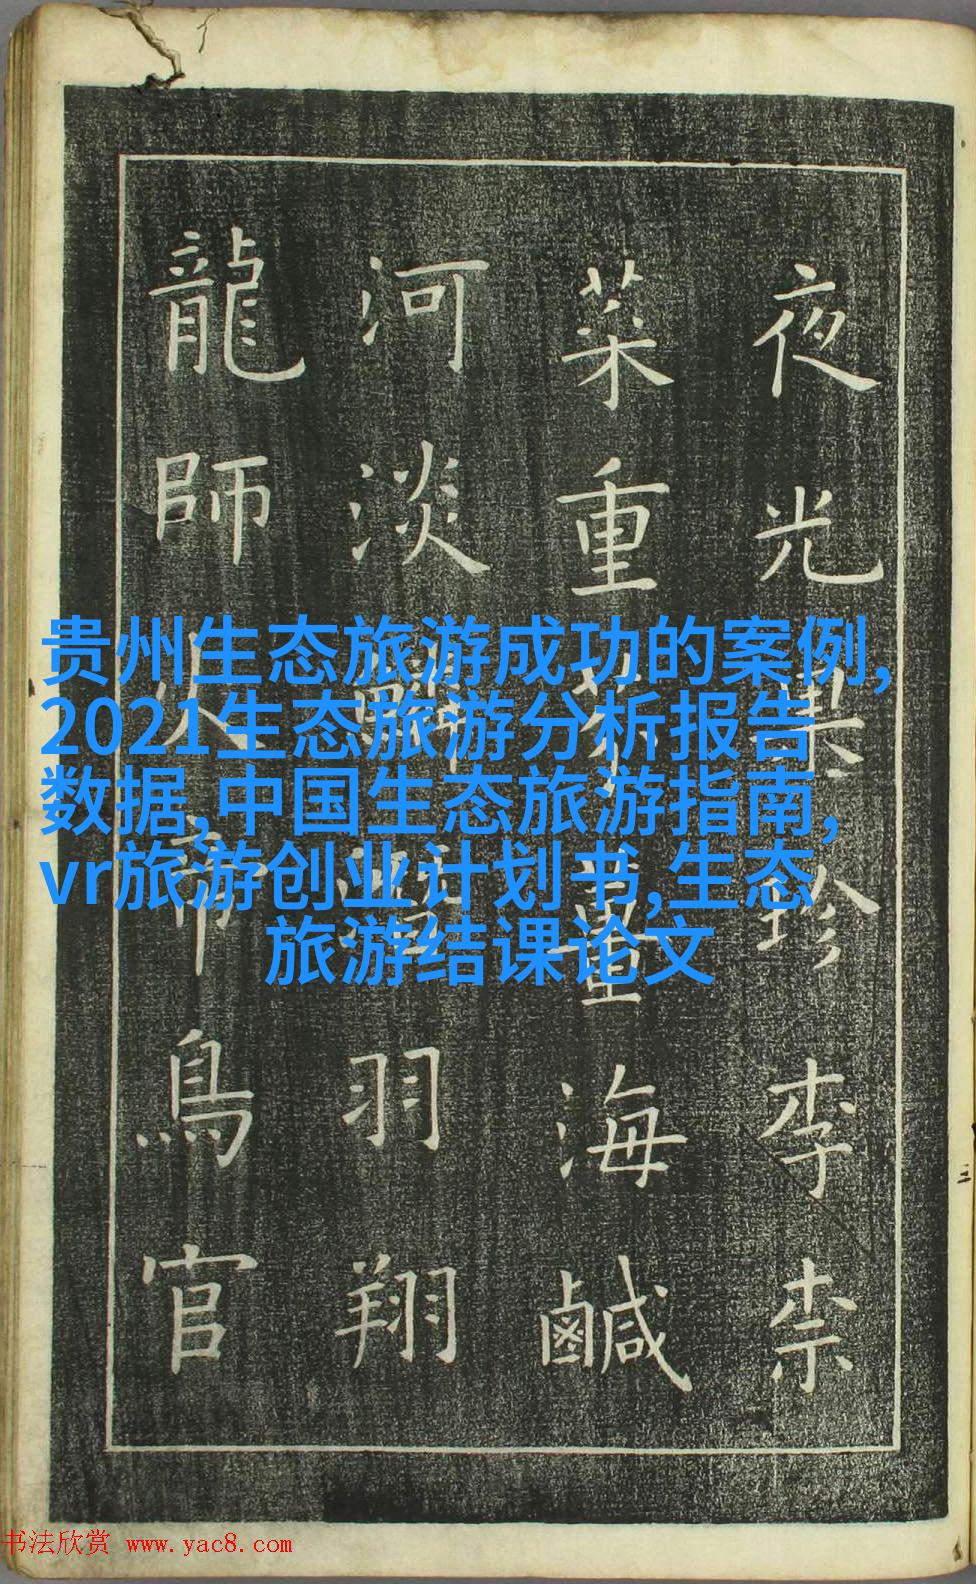 夜光果珍李柰
菜重芥薑海鹹
河淡鱗潛羽翔
龍師火帝鳥官
贵州生态旅游成功的案例,
2021生态旅游分析报告
数据,中国生态旅游指南,
vr旅游创业计划书,生态
旅游结课论文
书法欣赏 www.yac8.com